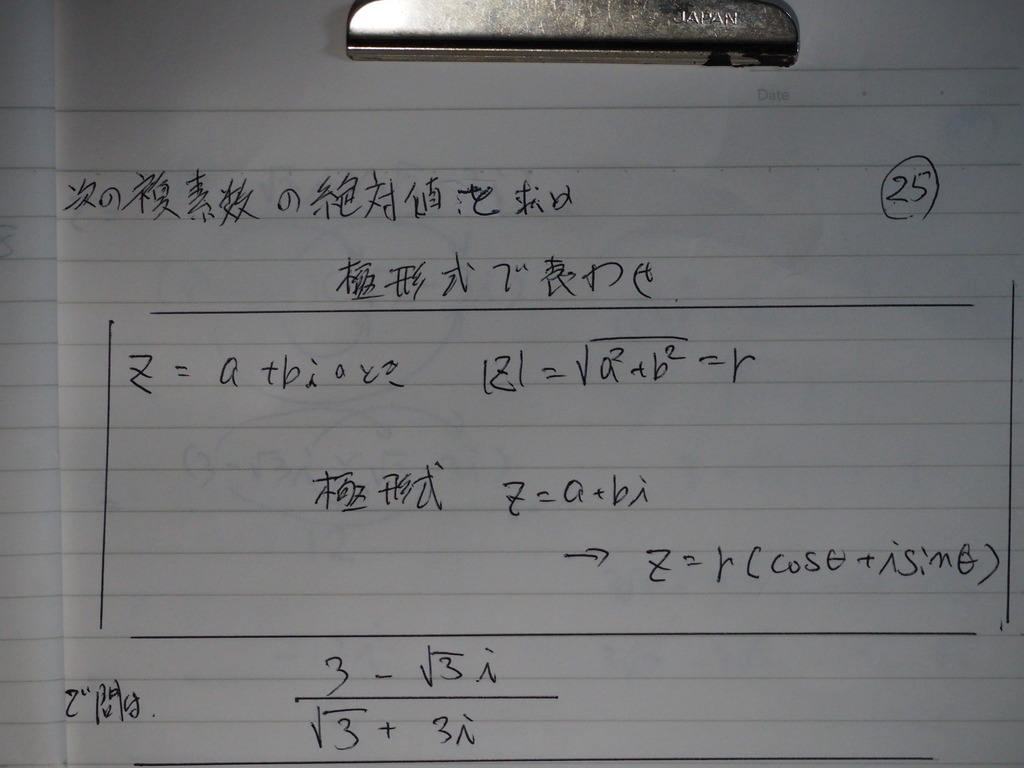 JAPAN
Date
次の複素数の絶対値を求め
25
極形式で表わせ
z = a + bi のとき |z| = √(a²+b²) = r
極形式 z = a + bi
→ z = r(cosθ + i sinθ)
で問は.
3 - √3 i
√3 + 3i